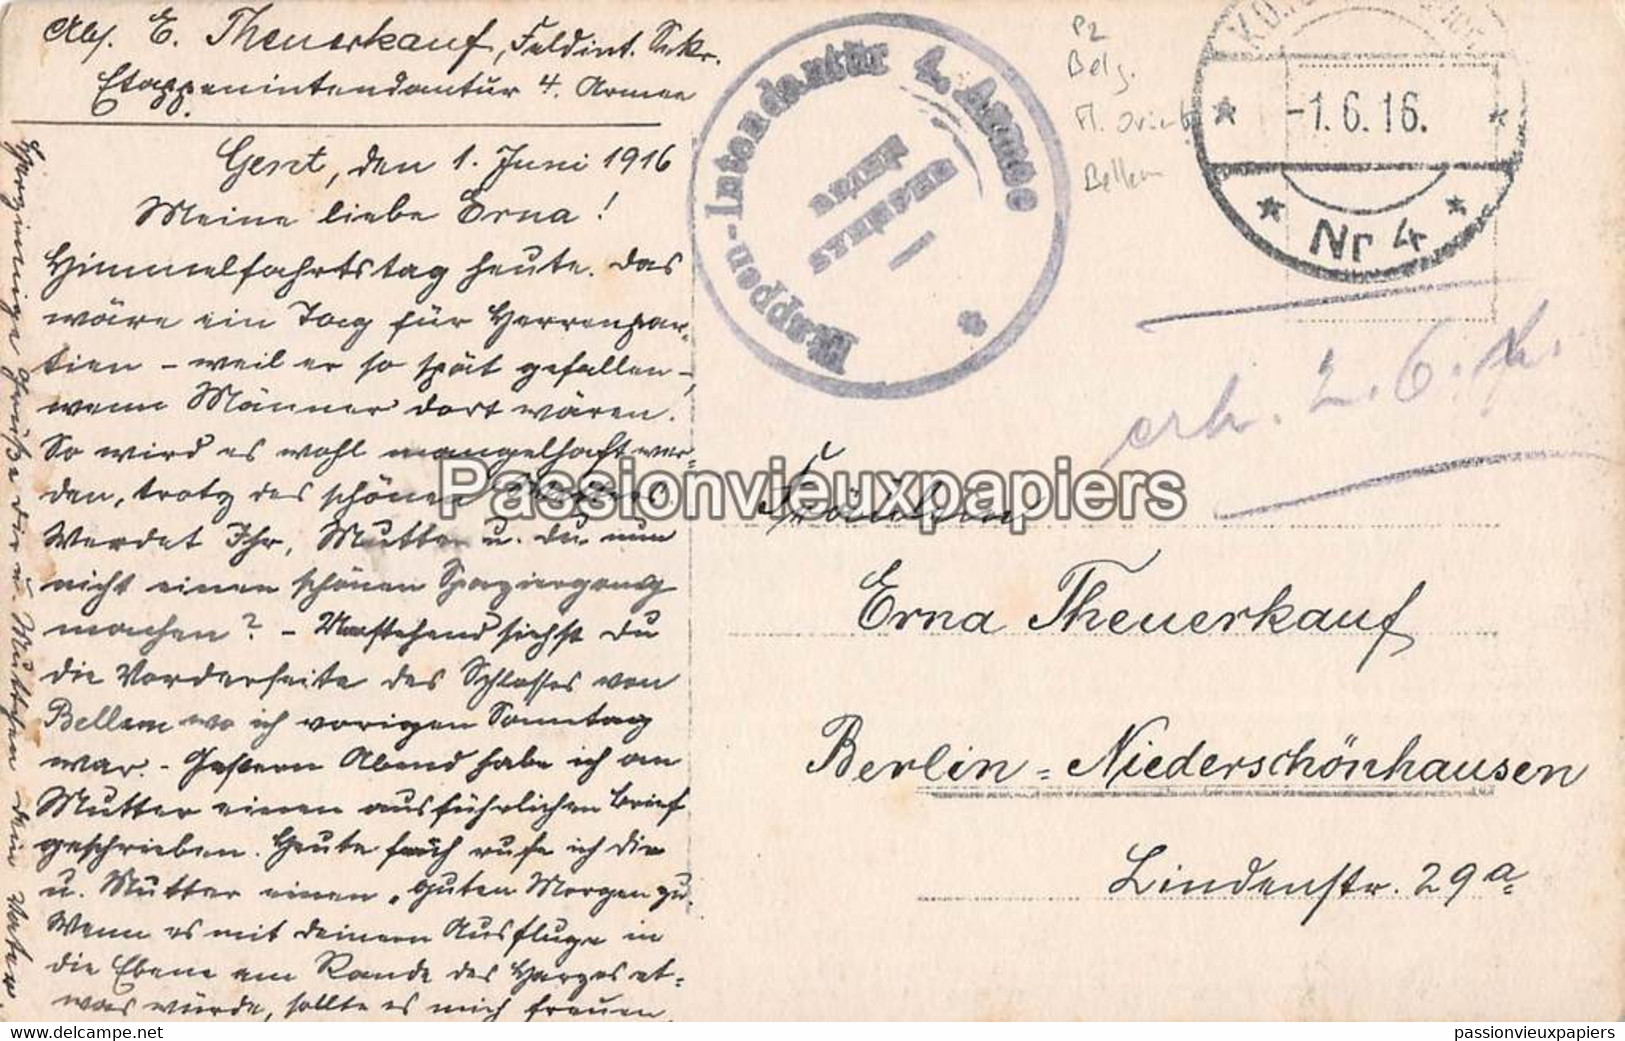 Abs. E. Theuerkauf, Feldint. Sekr.
Etappenintendantur 4. Armee
Gent, den 1. Juni 1916
Meine liebe Erna!
Himmelfahrtstag heute. Das
wäre ein Tag für Herrenpar-
tien – weil er so spät gefallen –,
wenn Männer dort wären.
So wird es wohl mangelhaft wer-
den, trotz des schönen
Werdet Ihr, Mutter u. Du nun
nicht einen schönen Spaziergang
machen? – Umstehend siehst Du
die Vorderseite des Schlosses von
Bellem wo ich vorigen Sonntag
war. – Gestern Abend habe ich an
Mutter einen ausführlichen Brief
geschrieben. Heute früh rufe ich Dir
u. Mutter einen „Guten Morgen zu.
Wenn es mit Deinem Ausfluge in
die Ebene am Rande des Harzes et-
was würde, sollte es mich freuen.
Herzinnige Grüße Dir u. Muttchen Dein Vater.
Etappen-Intendantur 4. Armee
BRIEF
STEMPEL
P2
Belg.
Fl. Orient
Bellem
-1.6.16.
Nr 4
erh. 2.6.
Fräulein
Erna Theuerkauf
Berlin-Niederschönhausen
Lindenstr. 29a
Passionvieuxpapiers
delcampe.net
passionvieuxpapiers